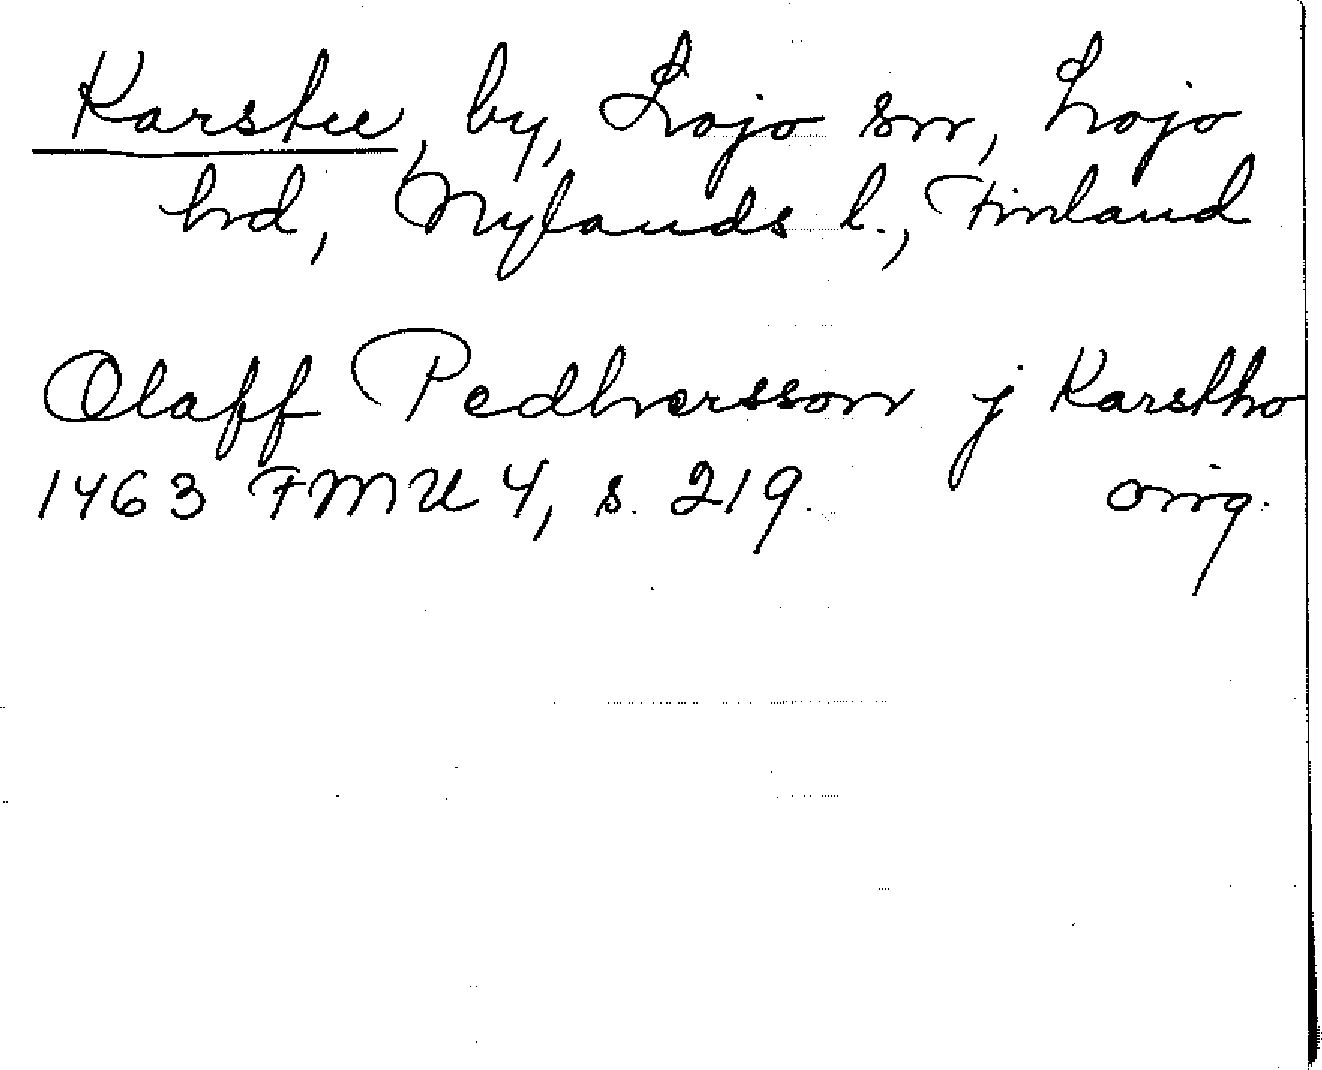 Karstu, by, Lojo sn, Lojo
hd, Nylands l., Finland
Olaff Pedhersson j Karstho
1463 FMU 4, s. 219. orig.